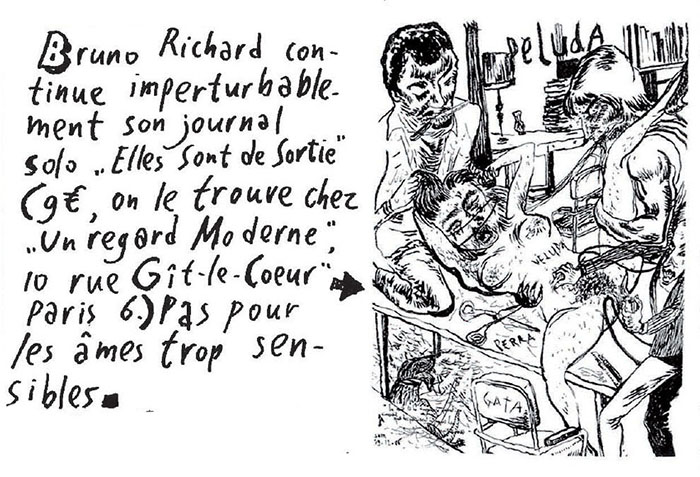 Bruno Richard con-
tinue imperturbable-
ment son journal
solo „Elles Sont de Sortie"
(9€, on le trouve chez
„Un regard Moderne",
10 rue Gît-le-Coeur"
Paris 6.) Pas pour
les âmes trop sen-
sibles.
PeludA
VELUDA
PERRA
GATA